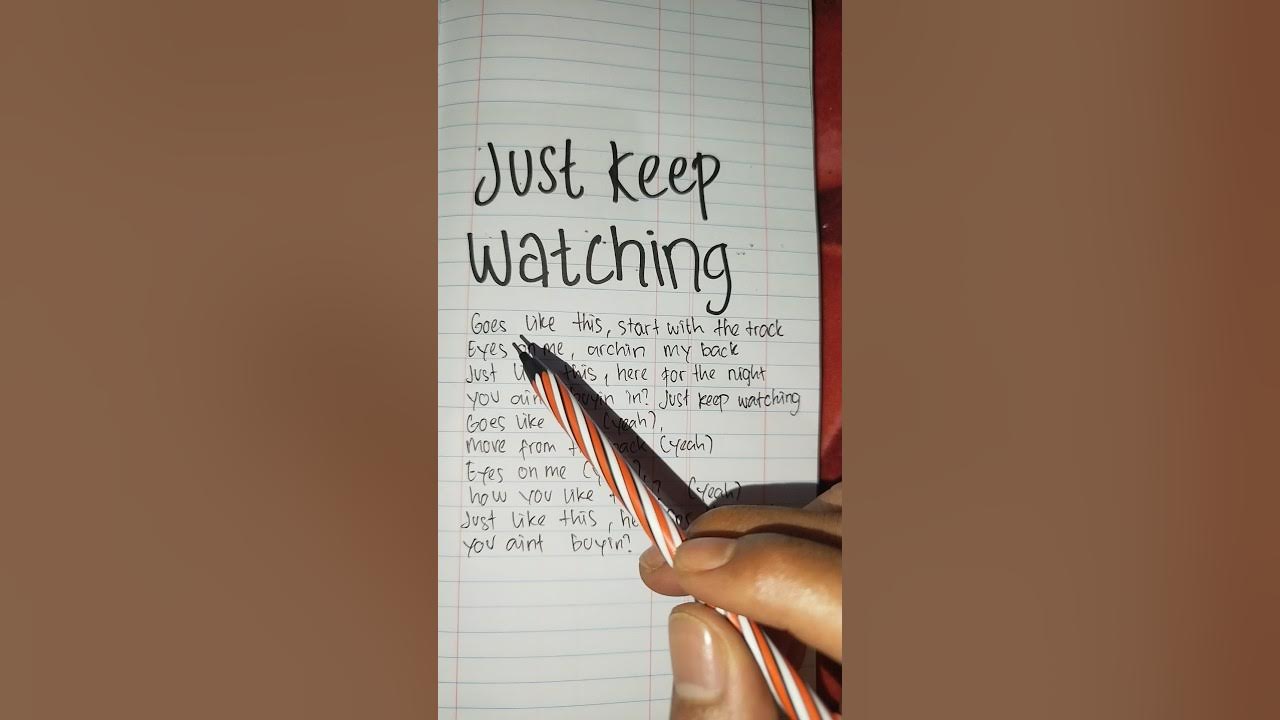 Just keep
watching
Goes like this, start with the track
Eyes on me, archin my back
Just this, here for the night
you buyin in? Just keep watching
Goes like (yeah),
move from (yeah)
Eyes on me
how you like (yeah)
Just like this,
you aint buyin?